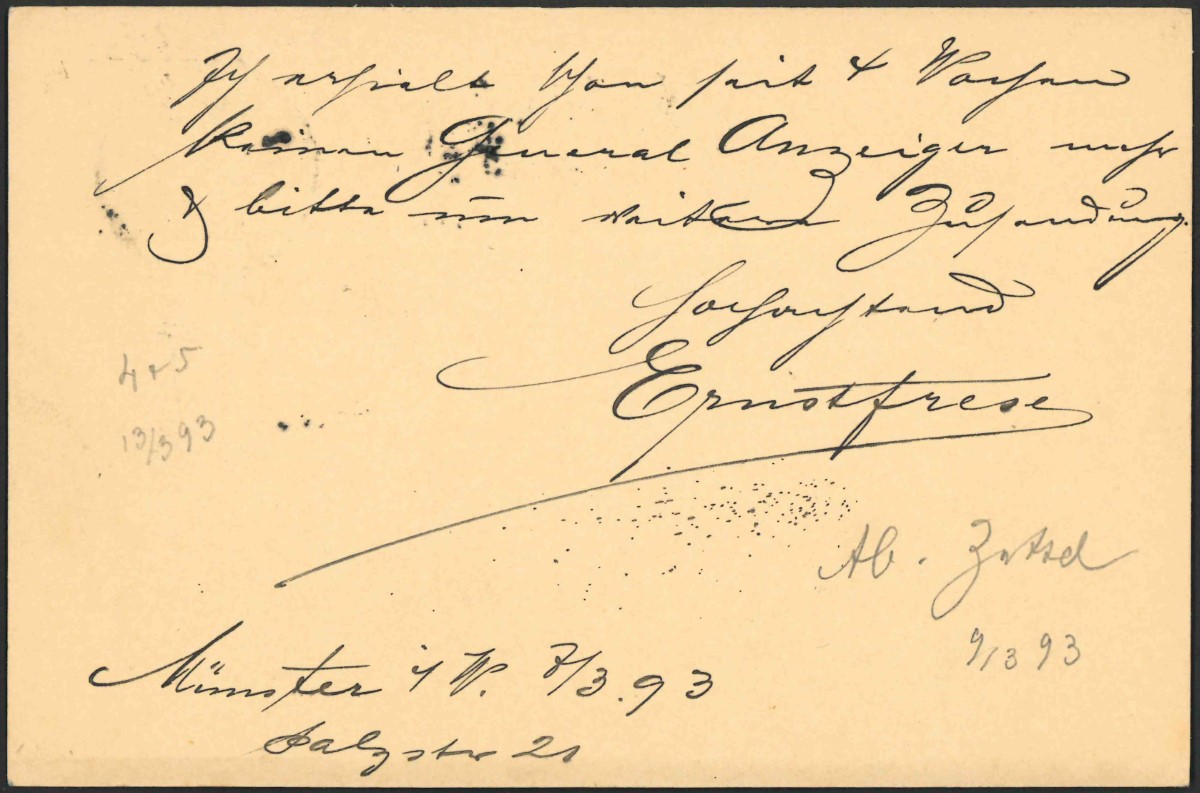 Ich erhielt schon seit 4 Wochen
keinen General Anzeiger mehr
& bitte um weitere Zusendung.
Hochachtend
Ernst Frese
4 + 5
13/3 93
Ab.
9/3 93
Münster i/W. 7/3.93
Salzstr 21